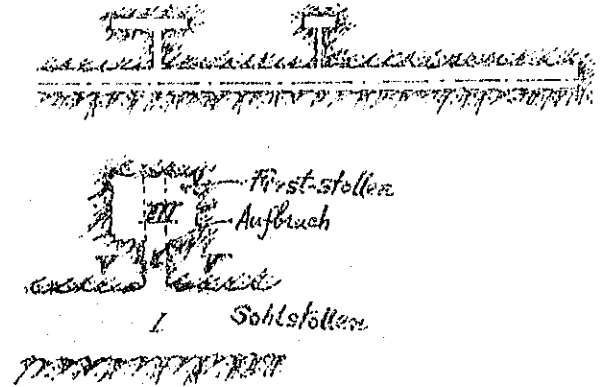 First-stollen
III
Aufbruch
I
Sohlstollen